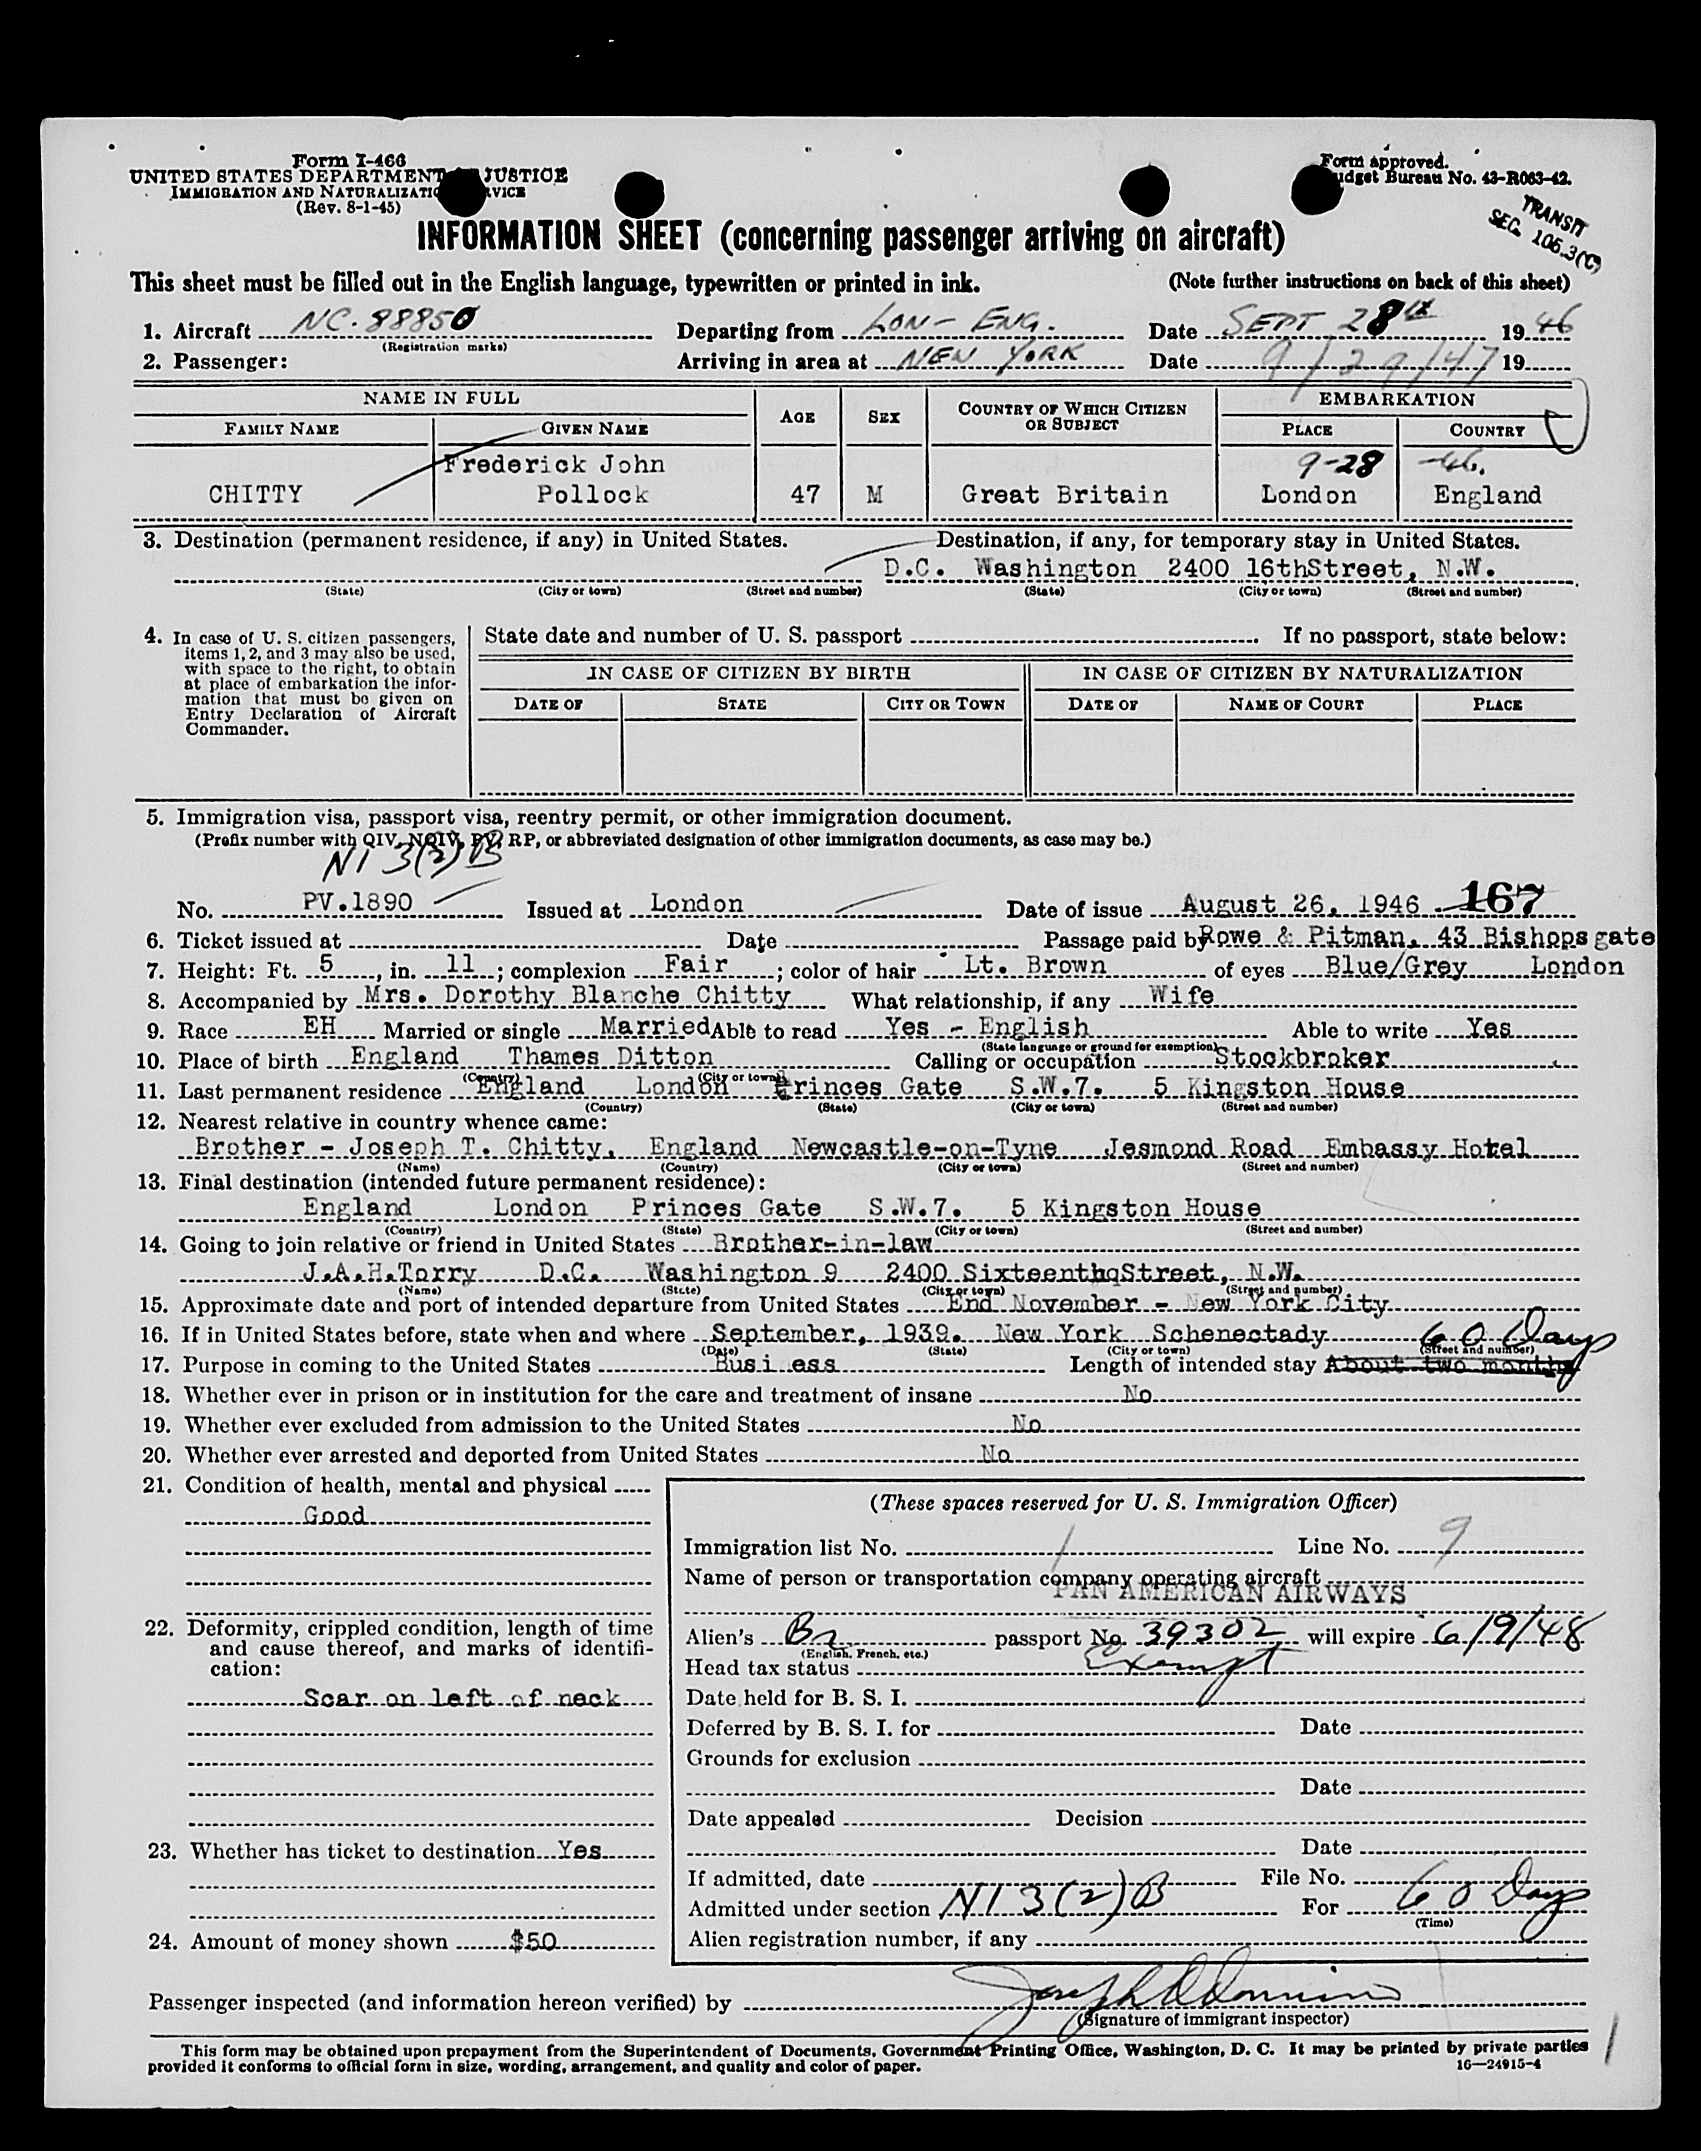 Form I-466
UNITED STATES DEPARTMENT JUSTICE
IMMIGRATION AND NATURALIZATION SERVICE
(Rev. 8-1-45)
Form approved.
Budget Bureau No. 43-R063-42.
TRANSIT
SEC. 105.3(C)
INFORMATION SHEET (concerning passenger arriving on aircraft)
This sheet must be filled out in the English language, typewritten or printed in ink. (Note further instructions on back of this sheet)
1. Aircraft NC-88850 Departing from LON- ENG. Date SEPT 28th 1946
(Registration marks)
2. Passenger: Arriving in area at NEW YORK Date 9/29/47 19
NAME IN FULL AGE SEX COUNTRY OF WHICH CITIZEN OR SUBJECT EMBARKATION
FAMILY NAME GIVEN NAME PLACE COUNTRY
Frederick John 9-28 -46.
CHITTY Pollock 47 M Great Britain London England
3. Destination (permanent residence, if any) in United States. Destination, if any, for temporary stay in United States.
D.C. Washington 2400 16thStreet, N.W.
(State) (City or town) (Street and number) (State) (City or town) (Street and number)
4. In case of U. S. citizen passengers, items 1, 2, and 3 may also be used, with space to the right, to obtain at place of embarkation the information that must be given on Entry Declaration of Aircraft Commander.
State date and number of U. S. passport If no passport, state below:
IN CASE OF CITIZEN BY BIRTH IN CASE OF CITIZEN BY NATURALIZATION
DATE OF STATE CITY OR TOWN DATE OF NAME OF COURT PLACE
5. Immigration visa, passport visa, reentry permit, or other immigration document.
(Prefix number with QIV, NQIV, PV, RP, or abbreviated designation of other immigration documents, as case may be.)
NI 3(2)B
No. PV.1890 Issued at London Date of issue August 26, 1946 167
6. Ticket issued at Date Passage paid by Rowe & Pitman, 43 Bishopsgate
7. Height: Ft. 5, in. 11; complexion Fair; color of hair Lt. Brown of eyes Blue/Grey London
8. Accompanied by Mrs. Dorothy Blanche Chitty What relationship, if any Wife
9. Race EH Married or single Married Able to read Yes - English Able to write Yes
(State language or ground for exemption)
10. Place of birth England Thames Ditton Calling or occupation Stockbroker
(Country) (City or town)
11. Last permanent residence England London Princes Gate S.W.7. 5 Kingston House
(Country) (State) (City or town) (Street and number)
12. Nearest relative in country whence came:
Brother - Joseph T. Chitty, England Newcastle-on-Tyne Jesmond Road Embassy Hotel
(Name) (Country) (City or town) (Street and number)
13. Final destination (intended future permanent residence):
England London Princes Gate S.W.7. 5 Kingston House
(Country) (State) (City or town) (Street and number)
14. Going to join relative or friend in United States Brother-in-law
J.A.H.Torry D.C. Washington 9 2400 SixteenthqStreet, N.W.
(Name) (State) (City or town) (Street and number)
15. Approximate date and port of intended departure from United States End November - New York City
16. If in United States before, state when and where September, 1939. New York Schenectady 60 Days
(Date) (State) (City or town) (Street and number)
17. Purpose in coming to the United States Busi ess Length of intended stay About two months
18. Whether ever in prison or in institution for the care and treatment of insane No
19. Whether ever excluded from admission to the United States No
20. Whether ever arrested and deported from United States No
21. Condition of health, mental and physical
Good
22. Deformity, crippled condition, length of time and cause thereof, and marks of identification:
Scar on left of neck
23. Whether has ticket to destination Yes
24. Amount of money shown $50
(These spaces reserved for U. S. Immigration Officer)
Immigration list No. 1 Line No. 9
Name of person or transportation company operating aircraft
PAN AMERICAN AIRWAYS
Alien's Br passport No. 39302 will expire 6/9/48
(English, French, etc.)
Head tax status Exempt
Date held for B. S. I.
Deferred by B. S. I. for Date
Grounds for exclusion
Date
Date appealed Decision
Date
If admitted, date File No.
Admitted under section NI 3(2)B For 60 Days
(Time)
Alien registration number, if any
Passenger inspected (and information hereon verified) by
(Signature of immigrant inspector)
This form may be obtained upon prepayment from the Superintendent of Documents, Government Printing Office, Washington, D. C. It may be printed by private parties
provided it conforms to official form in size, wording, arrangement, and quality and color of paper. 16—24915-4